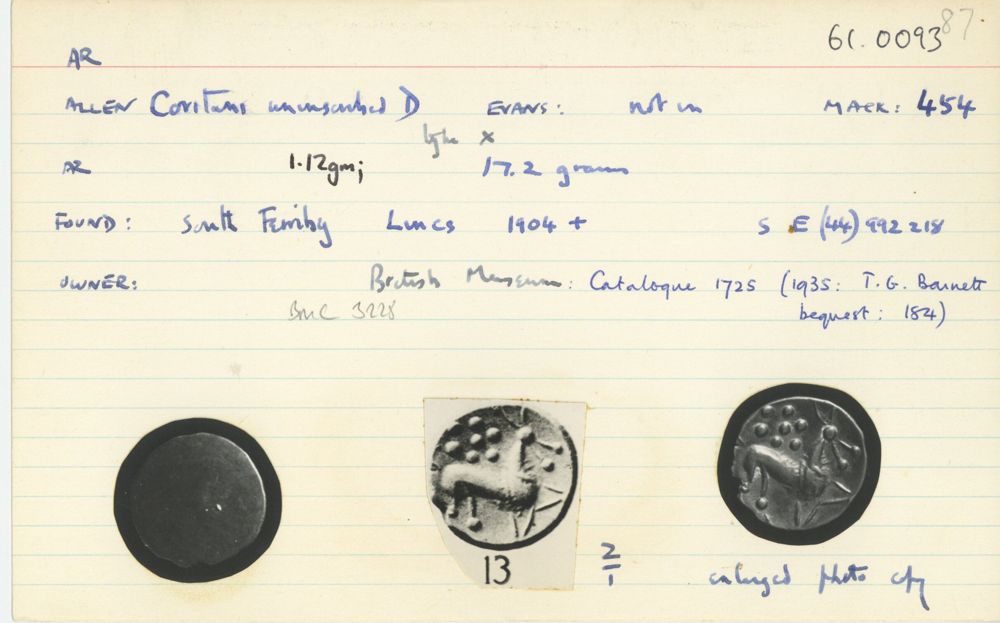 61.0093 87
AR
ALLEN Coritani uninscribed D EVANS: not in MACK: 454
type x
AR 1.12gm; 17.2 grains
FOUND: South Ferriby Lincs 1904 + S E (44) 992218
OWNER: British Museum: Catalogue 1725 (1935: T.G. Barnett
BMC 3228 bequest: 184)
13
2/1
enlarged photo copy